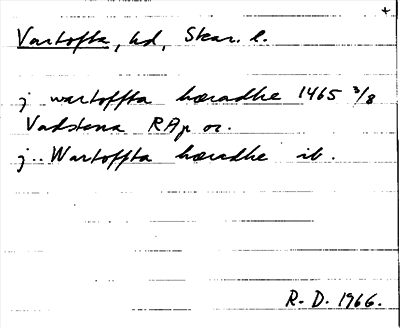 +
Vartofta, hd, Skar. l.
j wartoffta hæradhe 1465 3/8
Vadstena RAp or.
j.. Wartoffta hæradhe ib.
R. D. 1966.